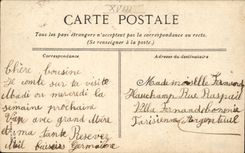 XVIII
CARTE POSTALE
Tous les pays étrangers n'acceptent pas la correspondance au recto.
(Se renseigner à la poste)
Correspondance
Adresse du destinataire
Chère cousine
Je compte sur ta visite
Mardi ou mercredi la
semaine prochain
Viens avec grand Mère
et ma tante Recevez
Mill baisers Germaine
Mademoiselle
Rue Raspail
Villa
Argenteuil